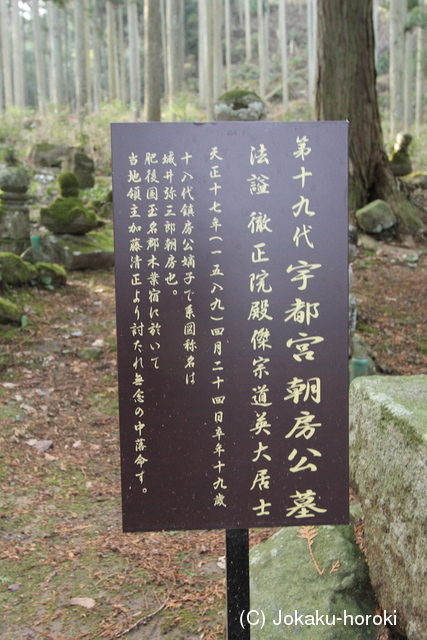 第十九代 宇都宮朝房公墓
法諡 徹正院殿傑宗道英大居士
天正十七年（一五八九）四月二十四日卒年十九歳
十八代鎮房公嫡子で系図称名は
城井弥三郎朝房也。
肥後国玉名郡木葉宿に於いて
当地領主加藤清正より討たれ無念の中落命す。
(C) Jokaku-horoki